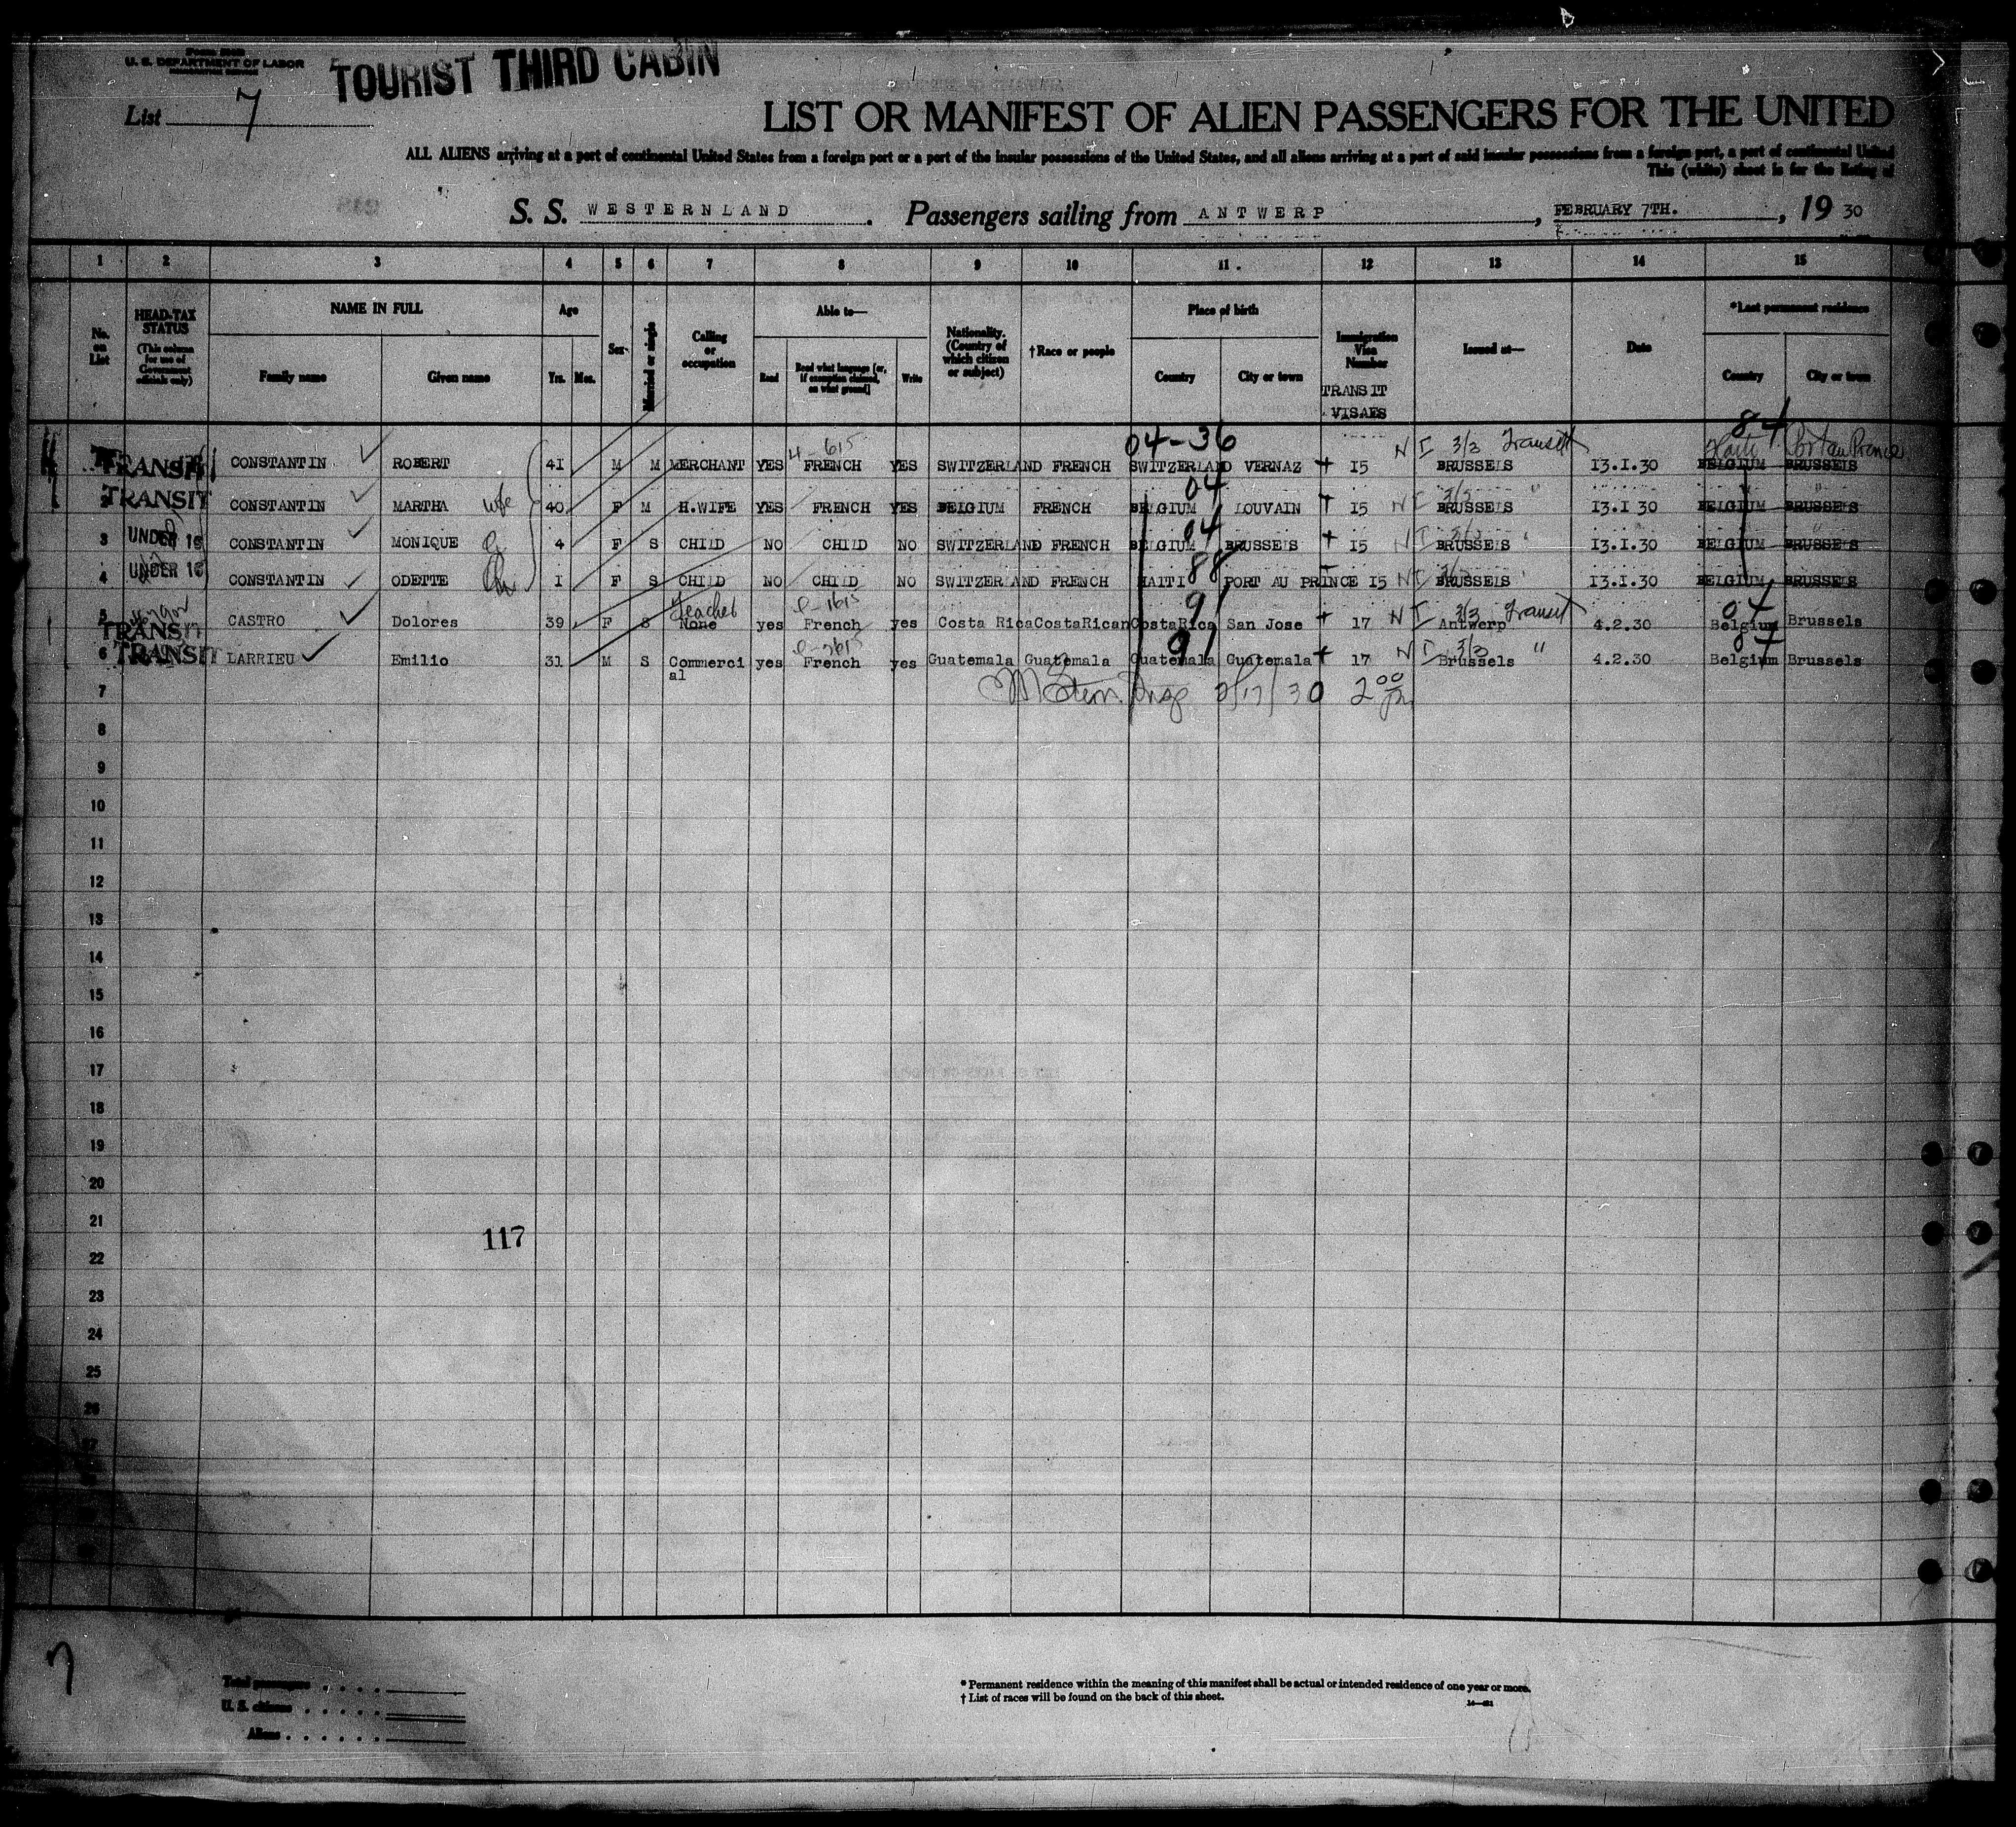 U. S. DEPARTMENT OF LABOR
TOURIST THIRD CABIN
List 7
LIST OR MANIFEST OF ALIEN PASSENGERS FOR THE UNITED
ALL ALIENS arriving at a port of continental United States from a foreign port or a port of the insular possessions of the United States, and all aliens arriving at a port of said insular possessions from a foreign port, a port of continental United
This (white) sheet is for the listing of
S. S. WESTERNLAND. Passengers sailing from ANTWERP, FEBRUARY 7TH., 19 30
1 2 3 4 5 6 7 8 9 10 11. 12 13 14 15
No. on List
HEAD-TAX STATUS (This column for use of Government officials only)
NAME IN FULL Family name Given name
Age Yrs. Mos.
Sex
Married or single
Calling or occupation
Able to— Read Read what language [or, if exemption claimed, on what ground] Write
Nationality. (Country of which citizen or subject)
†Race or people
Place of birth Country City or town
Immigration Visa Number TRANSIT VISAES
Issued at—
Date
*Last permanent residence Country City or town
04-36 84
TRANSIT CONSTANTIN ROBERT 41 M M MERCHANT YES 4-615 FRENCH YES SWITZERLAND FRENCH SWITZERLAND VERNAZ + 15 N I 3/3 Transit BRUSSELS 13.I.30 Haiti Port au Prince BELGIUM BRUSSELS
TRANSIT CONSTANTIN MARTHA wife 40 F M H.WIFE YES FRENCH YES BELGIUM FRENCH 04 BELGIUM LOUVAIN + 15 N I 3/3 " BRUSSELS 13.I 30 BELGIUM BRUSSELS
3 UNDER 16 CONSTANTIN MONIQUE 4 F S CHILD NO CHILD NO SWITZERLAND FRENCH 04 BELGIUM BRUSSELS + 15 N I 3/3 " BRUSSELS 13.I.30 BELGIUM BRUSSELS
4 UNDER 16 CONSTANTIN ODETTE Ch 1 F S CHILD NO CHILD NO SWITZERLAND FRENCH 88 HAITI PORT AU PRINCE 15 N I BRUSSELS 13.I.30 BELGIUM BRUSSELS
5 TRANSIT CASTRO Dolores 39 F S Teacher None yes French yes Costa Rica CostaRican 91 CostaRica San Jose + 17 N I 3/3 Transit Antwerp 4.2.30 04 Belgium Brussels
6 TRANSIT LARRIEU Emilio 31 M S Commercial yes French yes Guatemala Guatemala 91 Guatemala Guatemala + 17 N I 3/3 " Brussels 4.2.30 04 Belgium Brussels
7 2/17/30 2 00
8
9
10
11
12
13
14
15
16
17
18
19
20
21
117
22
23
24
25
26
27
7
Total passengers . . . .
U. S. citizens . . . . .
Aliens . . . . . .
* Permanent residence within the meaning of this manifest shall be actual or intended residence of one year or more.
† List of races will be found on the back of this sheet.